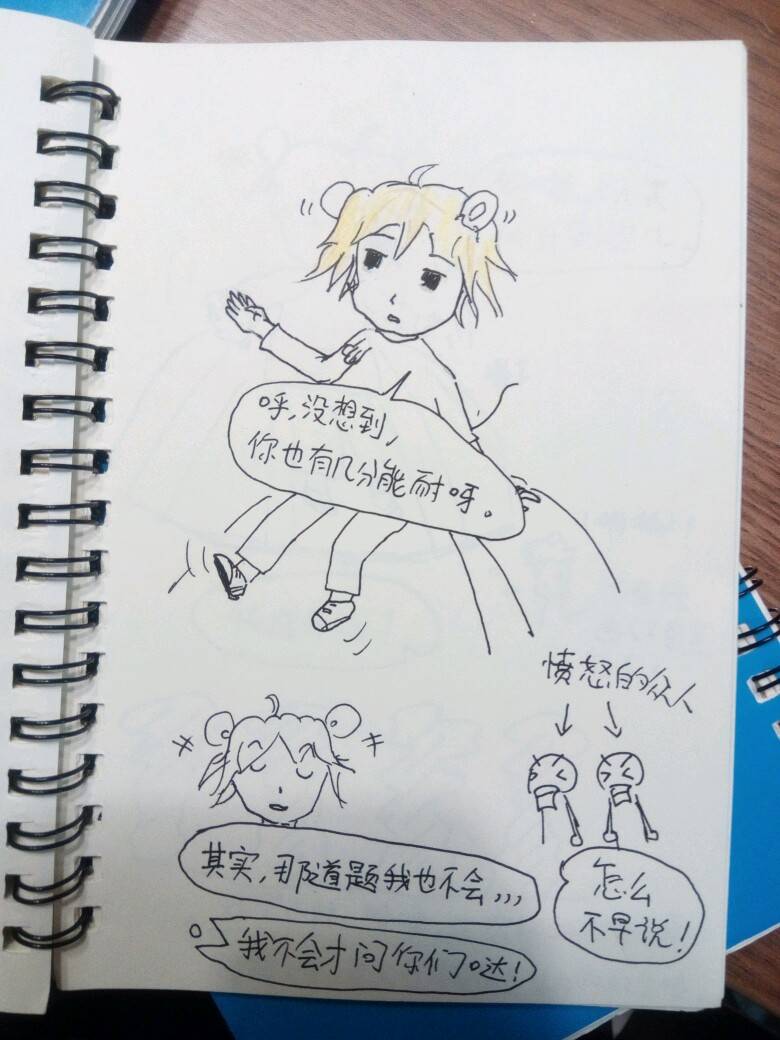 呼,没想到,
你也有几分能耐呀。
愤怒的众人
其实,那道题我也不会,,,
我不会才问你们哒!
怎么
不早说!